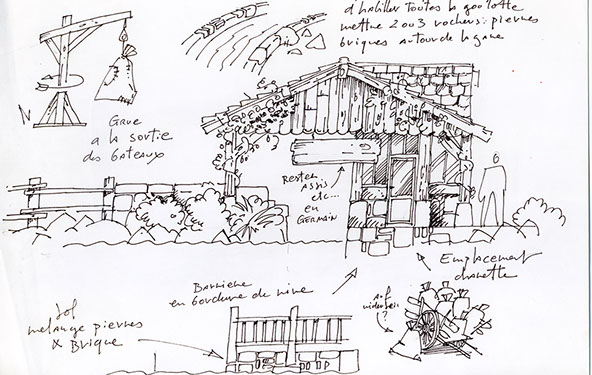 d'habiller toutes la goulotte
mettre 2 ou 3 rochers : pierres
briques autour de la gare
N
Grue
a la sortie
des bateaux
Rester
assis
etc...
en
Germain
Emplacement
charette
Barriere
en bordure de rive
Sol
melange pierres
& Brique
?